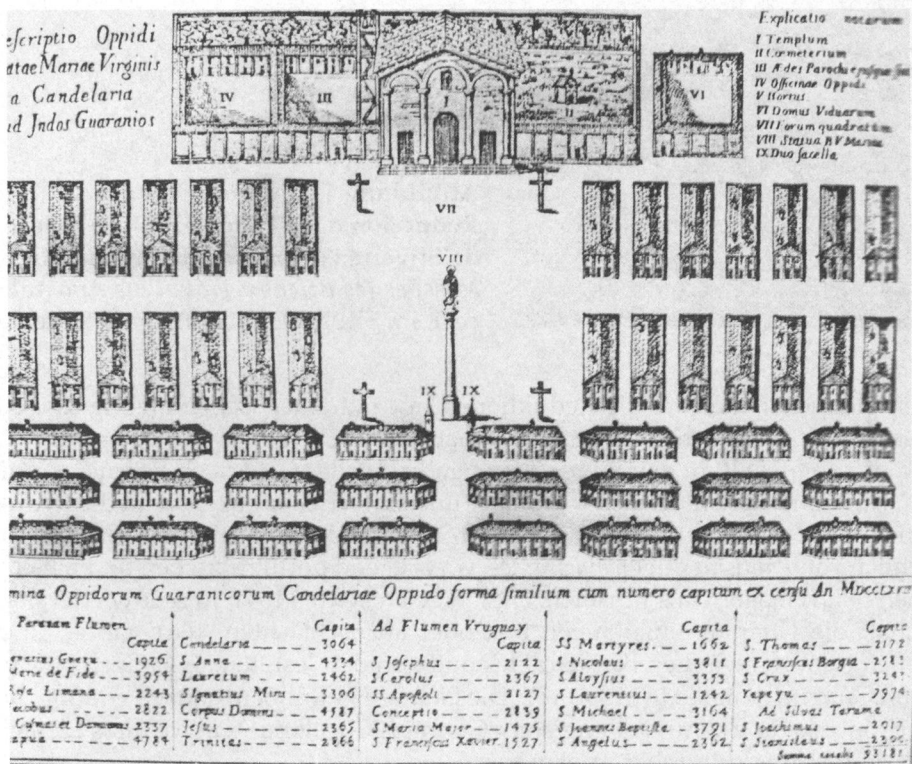 escriptio Oppidi
atae Mariae Virginis
a Candelaria
ud Jndos Guaranios
Explicatio notarum
I Templum
II Coemeterium
III Ædes Parochi
IV Officinae Oppidi
V Hortus
VI Domus Viduarum
VII Forum quadratum
VIII Statua B V Mariae
IX Duo sacella
IV
III
I
II
VI
VII
VIII
IX IX
mina Oppidorum Guaranicorum Candelariae Oppido forma similium cum numero capitum ex censu An
Paranam Flumen
Capita
gnatius Guazu 1926
Mariae de Fide 3954
Rosa Limana 2243
Jacobus 2822
Cosmas et Damianus 2337
tapua 4784
Capita
Candelaria 3064
S Anna 4334
Lauretum 2462
S Ignatius Miri 3306
Corpus Domini 4587
Jesus 2365
Trinitas 2866
Ad Flumen Vruguay
Capita
S Josephus 2122
S Carolus 2367
SS Apostoli 2127
Conceptio 2839
S Maria Major 1475
S Franciscus Xavier 1527
Capita
SS Martyres 1662
S Nicolaus 3811
S Aloysius 3353
S Laurentius 1242
S Michael 3164
S Joannes Baptista 3791
S Angelus 2362
Capita
S. Thomas 2172
S Franciscus Borgia 2583
S Crux 3243
Yapeyu 7974
Ad Silvas Taruma
S Joachimus 2017
S Stanislaus
Summa totalis 93181